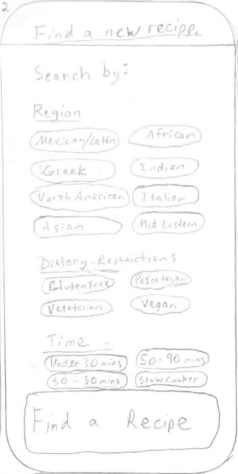 2
Find a new recippe
Search by:
Region
Mexican/Latin African
Greek Indian
North American Italian
Asian Mid Eastern
Dietary Restrictions
Gluten Free Pescetarian
Vegetarian Vegan
Time
Under 30 mins 50-90 mins
30-50 mins Slow cooker
Find a Recipe